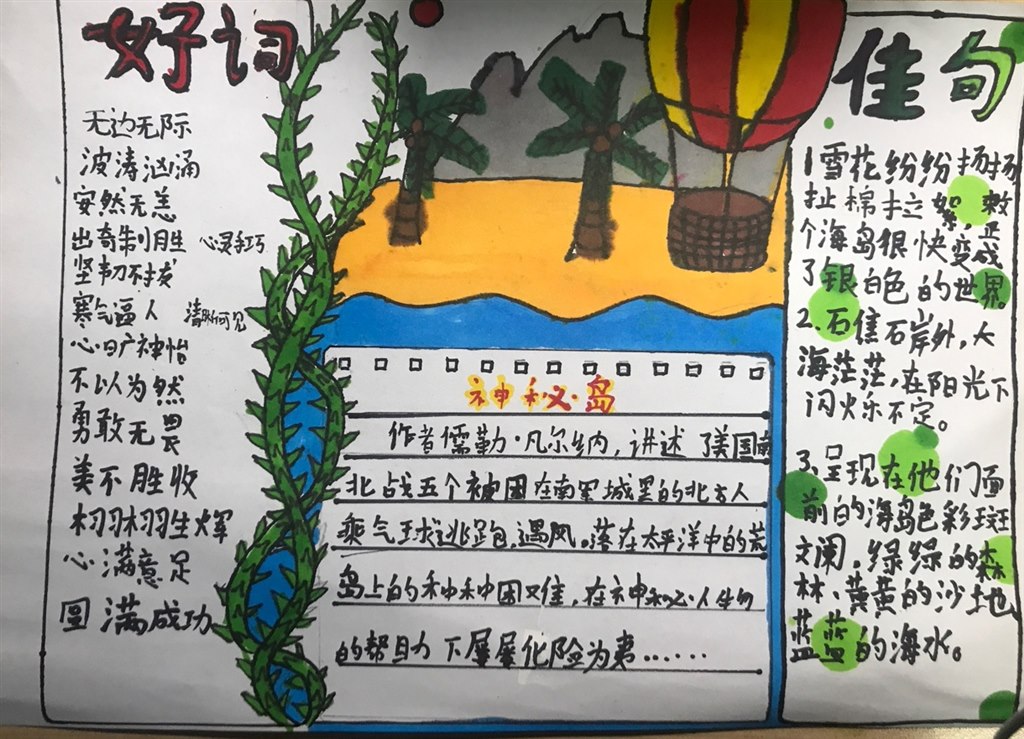 好词
无边无际
波涛汹涌
安然无恙
出奇制胜 心灵手巧
坚韧不拔
寒气逼人 清晰可见
心旷神怡
不以为然
勇敢无畏
美不胜收
栩栩生辉
心满意足
圆满成功
神秘岛
作者儒勒·凡尔纳，讲述了美国南
北战五个被困在南军城里的北方人
乘气球逃跑，遇风。落在太平洋中的荒
岛上的种种困难，在神秘人物
的帮助下屡屡化险为夷……
佳句
1雪花纷纷扬扬
扯棉拉絮，整
个海岛很快变成
了银白色的世界。
2.石焦石岸外，大
海茫茫，在阳光下
闪火乐不定。
3、呈现在他们面
前的海岛色彩斑
斓，绿绿的森
林、黄黄的沙土地
蓝蓝的海水。